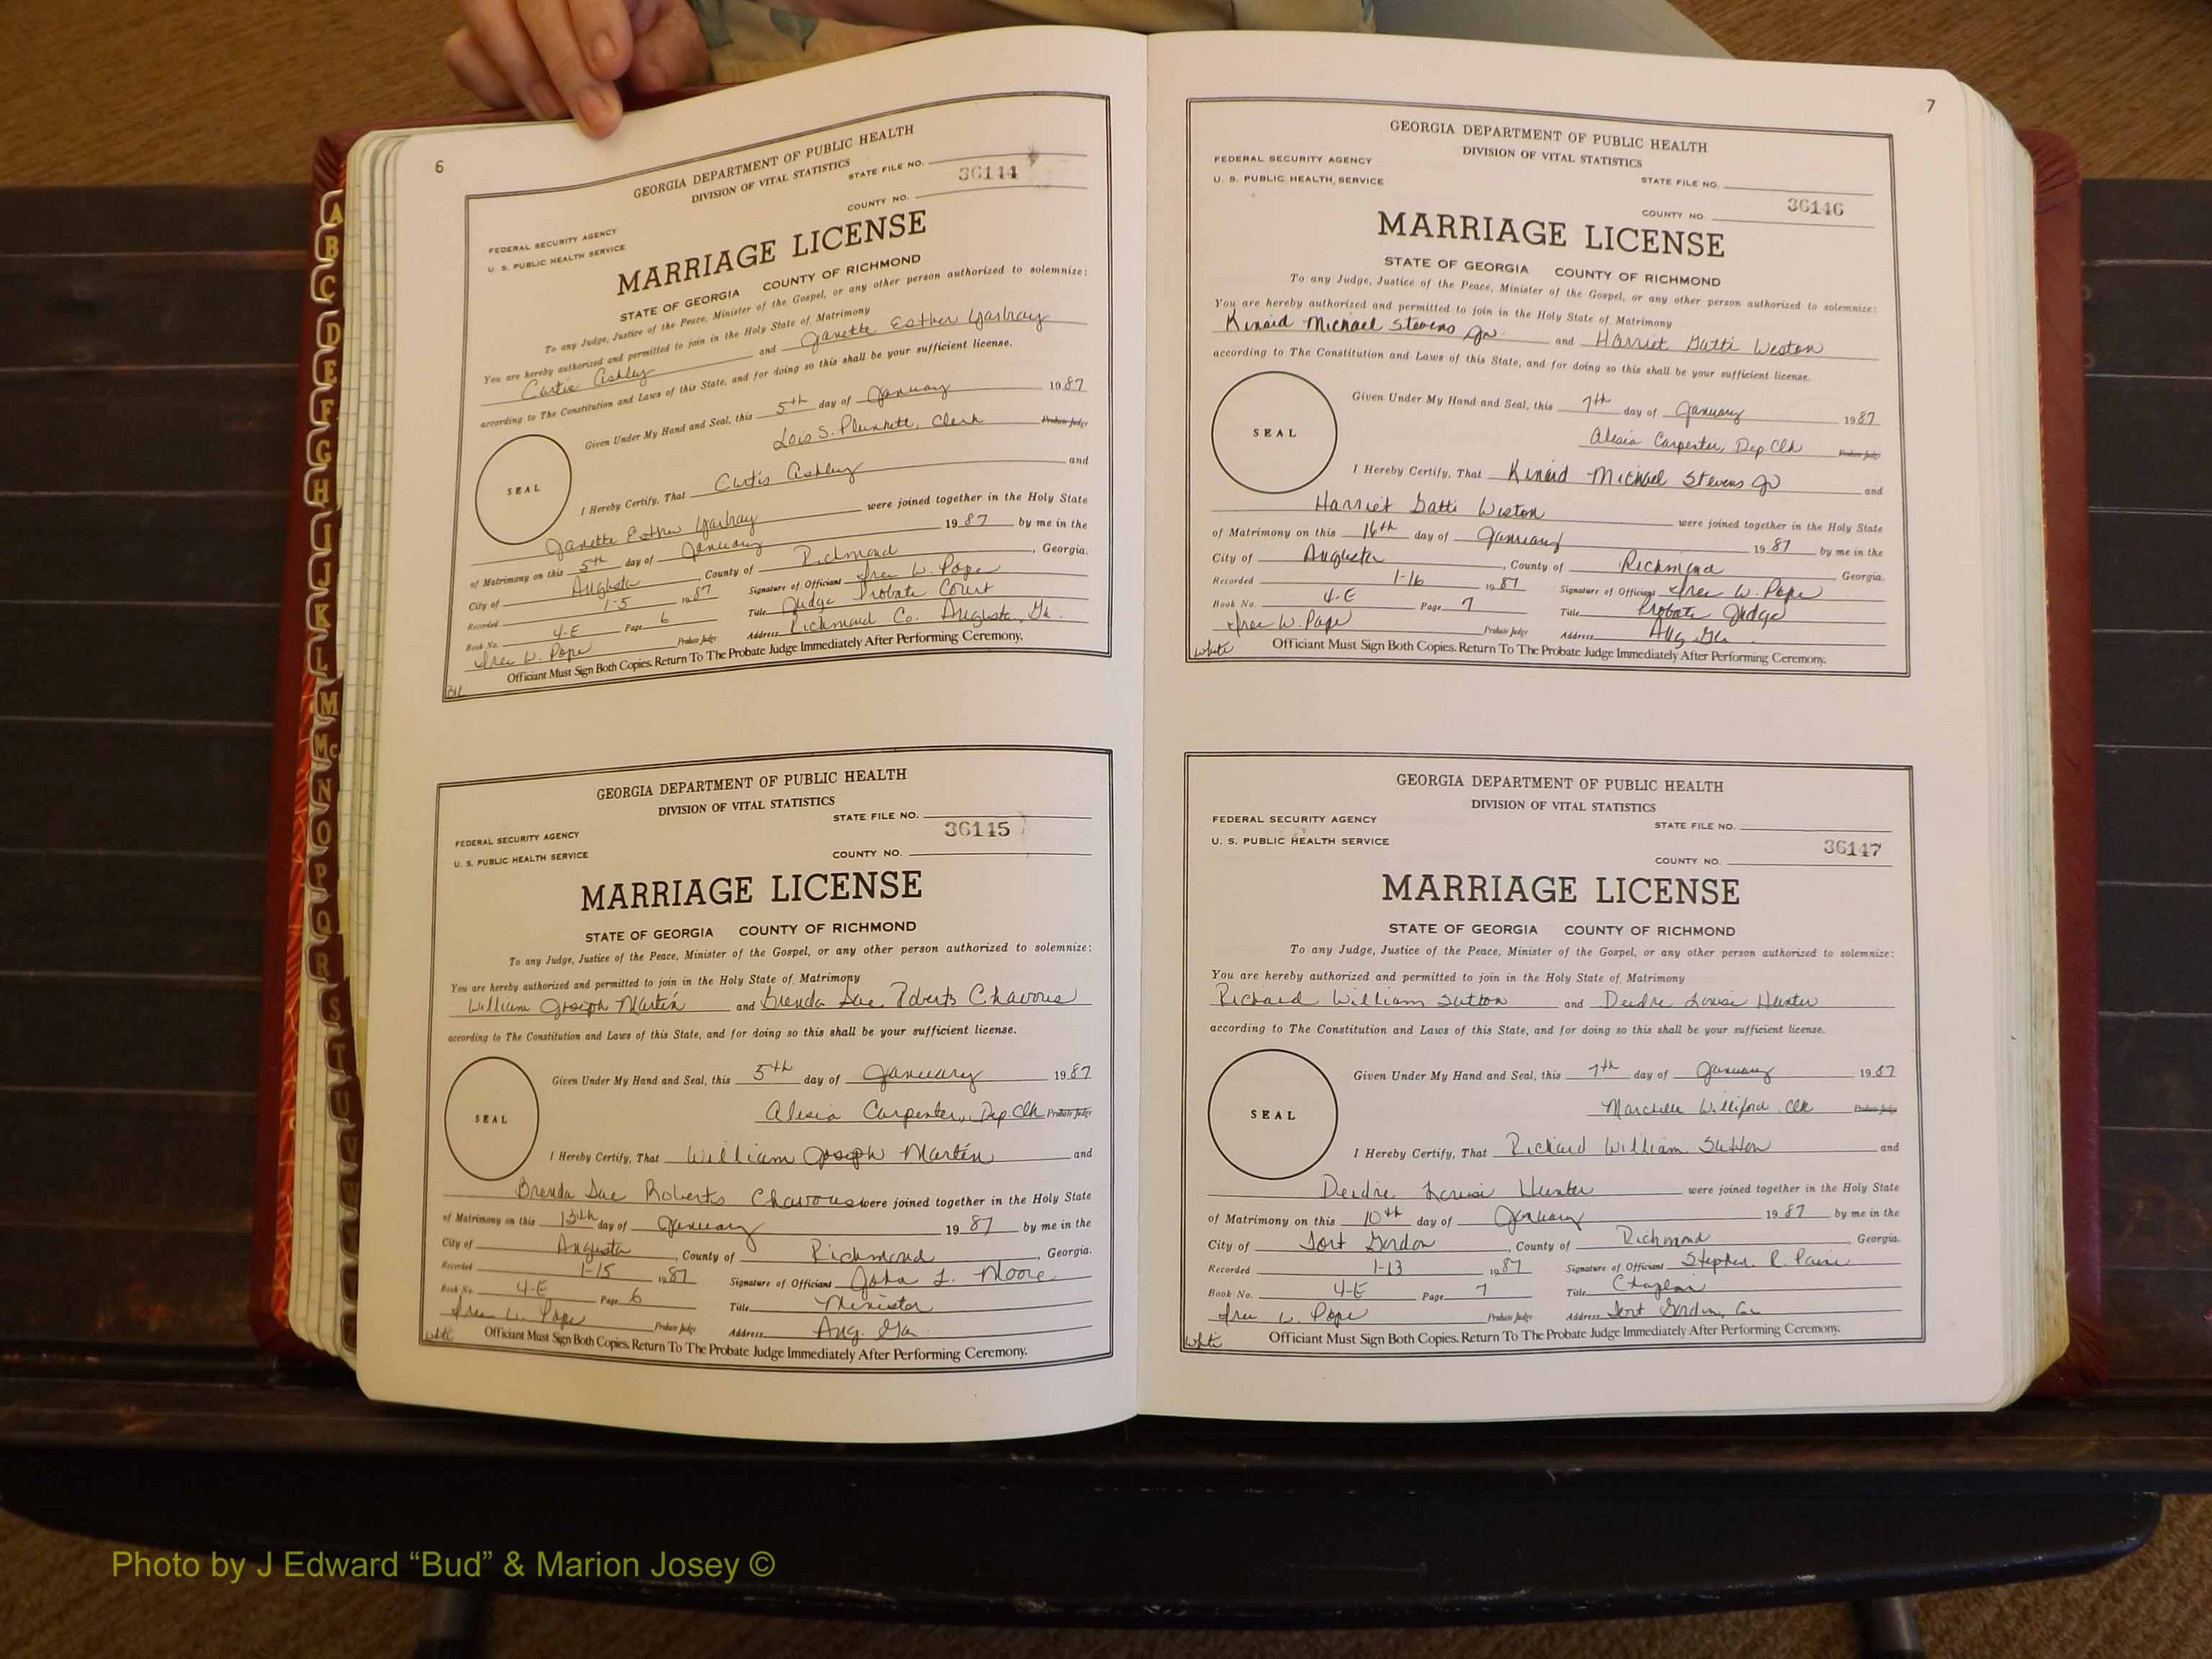 6
GEORGIA DEPARTMENT OF PUBLIC HEALTH
DIVISION OF VITAL STATISTICS
STATE FILE NO.
36144
COUNTY NO.
FEDERAL SECURITY AGENCY
U. S. PUBLIC HEALTH SERVICE
MARRIAGE LICENSE
STATE OF GEORGIA COUNTY OF RICHMOND
To any Judge, Justice of the Peace, Minister of the Gospel, or any other person authorized to solemnize:
You are hereby authorized and permitted to join in the Holy State of Matrimony
Curtis Ashley and Janette Esther Yarbray
according to The Constitution and Laws of this State, and for doing so this shall be your sufficient license.
Given Under My Hand and Seal, this 5th day of January 1987
Lois S. Plunkett, Clerk Probate Judge
SEAL
I Hereby Certify, That Curtis Ashley and
Janette Esther Yarbray were joined together in the Holy State
of Matrimony on this 5th day of January 1987 by me in the
City of Augusta, County of Richmond, Georgia.
Recorded 1-5 1987 Signature of Officiant W. Pope
Book No. 4-E Page 6 Title Judge Probate Court
W. Pope Probate Judge Address Richmond Co. Augusta, Ga.
Officiant Must Sign Both Copies. Return To The Probate Judge Immediately After Performing Ceremony.
GEORGIA DEPARTMENT OF PUBLIC HEALTH
DIVISION OF VITAL STATISTICS
STATE FILE NO.
36145
FEDERAL SECURITY AGENCY
U. S. PUBLIC HEALTH SERVICE
COUNTY NO.
MARRIAGE LICENSE
STATE OF GEORGIA COUNTY OF RICHMOND
To any Judge, Justice of the Peace, Minister of the Gospel, or any other person authorized to solemnize:
You are hereby authorized and permitted to join in the Holy State of Matrimony
William Joseph Martin and Brenda Sue Roberts Chavous
according to The Constitution and Laws of this State, and for doing so this shall be your sufficient license.
Given Under My Hand and Seal, this 5th day of January 1987
Alesia Carpenter, Dep. Clk Probate Judge
SEAL
I Hereby Certify, That William Joseph Martin and
Brenda Sue Roberts Chavous were joined together in the Holy State
of Matrimony on this 13th day of January 1987 by me in the
City of Augusta, County of Richmond, Georgia.
Recorded 1-15 1987 Signature of Officiant John L. Moore
Book No. 4-E Page 6 Title Minister
W. Pope Probate Judge Address Aug. Ga.
White Officiant Must Sign Both Copies. Return To The Probate Judge Immediately After Performing Ceremony.
7
GEORGIA DEPARTMENT OF PUBLIC HEALTH
DIVISION OF VITAL STATISTICS
FEDERAL SECURITY AGENCY
U. S. PUBLIC HEALTH SERVICE
STATE FILE NO.
36146
COUNTY NO.
MARRIAGE LICENSE
STATE OF GEORGIA COUNTY OF RICHMOND
To any Judge, Justice of the Peace, Minister of the Gospel, or any other person authorized to solemnize:
You are hereby authorized and permitted to join in the Holy State of Matrimony
Kinaid Michael Stevens Jr and Harriet Gatti Weston
according to The Constitution and Laws of this State, and for doing so this shall be your sufficient license.
Given Under My Hand and Seal, this 7th day of January 1987
Alesia Carpenter, Dep Clk Probate Judge
SEAL
I Hereby Certify, That Kinaid Michael Stevens Jr and
Harriet Gatti Weston were joined together in the Holy State
of Matrimony on this 16th day of January 1987 by me in the
City of Augusta, County of Richmond, Georgia.
Recorded 1-16 1987 Signature of Officiant W. Pope
Book No. 4-E Page 7 Title Probate Judge
W. Pope Probate Judge Address Aug Ga.
White Officiant Must Sign Both Copies. Return To The Probate Judge Immediately After Performing Ceremony.
GEORGIA DEPARTMENT OF PUBLIC HEALTH
DIVISION OF VITAL STATISTICS
FEDERAL SECURITY AGENCY
STATE FILE NO.
U. S. PUBLIC HEALTH SERVICE
36147
COUNTY NO.
MARRIAGE LICENSE
STATE OF GEORGIA COUNTY OF RICHMOND
To any Judge, Justice of the Peace, Minister of the Gospel, or any other person authorized to solemnize:
You are hereby authorized and permitted to join in the Holy State of Matrimony
Richard William Sutton and Deidre Louise Hunter
according to The Constitution and Laws of this State, and for doing so this shall be your sufficient license.
Given Under My Hand and Seal, this 7th day of January 1987
Marchelle Williford, Clk Probate Judge
SEAL
I Hereby Certify, That Richard William Sutton and
Deidre Louise Hunter were joined together in the Holy State
of Matrimony on this 10th day of January 1987 by me in the
City of Fort Gordon, County of Richmond, Georgia.
Recorded 1-13 1987 Signature of Officiant Stephen R.
Book No. 4-E Page 7 Title Chaplain
W. Pope Probate Judge Address Fort Gordon, Ga
White Officiant Must Sign Both Copies. Return To The Probate Judge Immediately After Performing Ceremony.
A
B
C
D
E
F
G
H
I
J
K
L
M
Mc
N
O
P
Q
R
S
T
U
Photo by J Edward “Bud” & Marion Josey ©